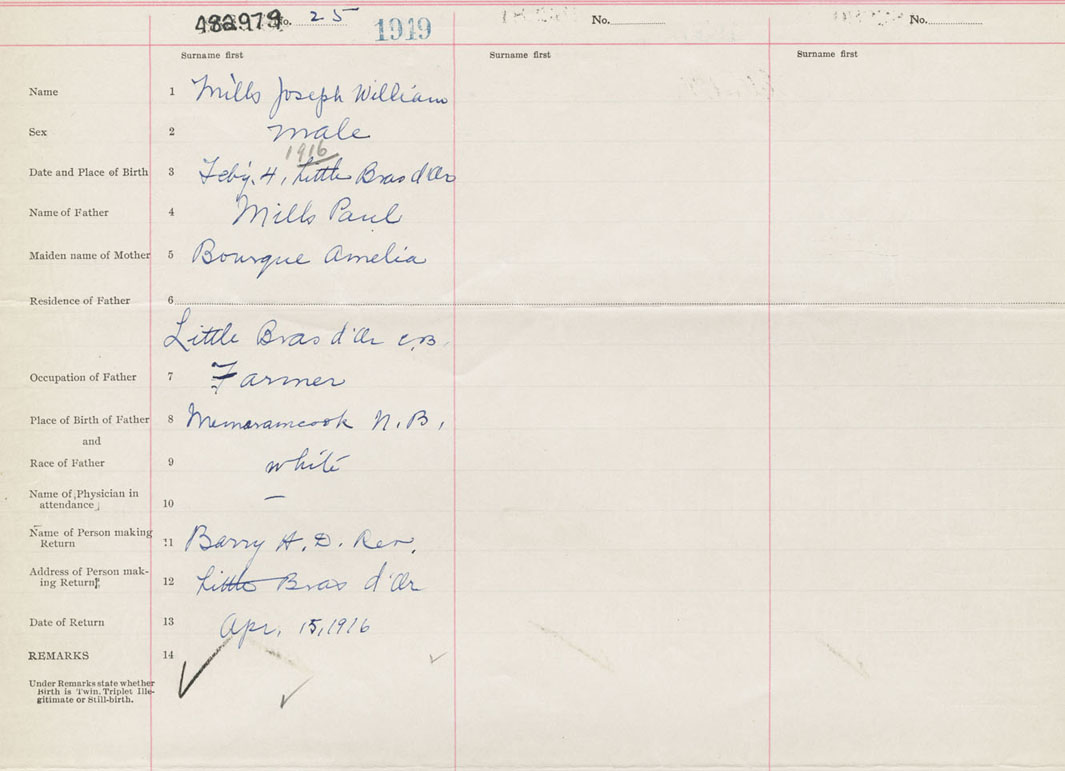 482979 No. 25 1949 No. No.
Surname first Surname first Surname first
Name 1 Mills Joseph William
Sex 2 male
1916
Date and Place of Birth 3 Feby. 4, Little Bras d'Or
Name of Father 4 Mills Paul
Maiden name of Mother 5 Bourque Amelia
Residence of Father 6
Little Bras d'Or C.B.
Occupation of Father 7 Farmer
Place of Birth of Father 8 Memramcook N.B.
and
Race of Father 9 white
Name of Physician in
attendance 10 —
Name of Person making
Return 11 Barry A. D. Rev.
Address of Person mak-
ing Return 12 Little Bras d'Or
Date of Return 13 Apr. 15, 1916
REMARKS 14
Under Remarks state whether
Birth is Twin. Triplet Ille-
gitimate or Still-birth.